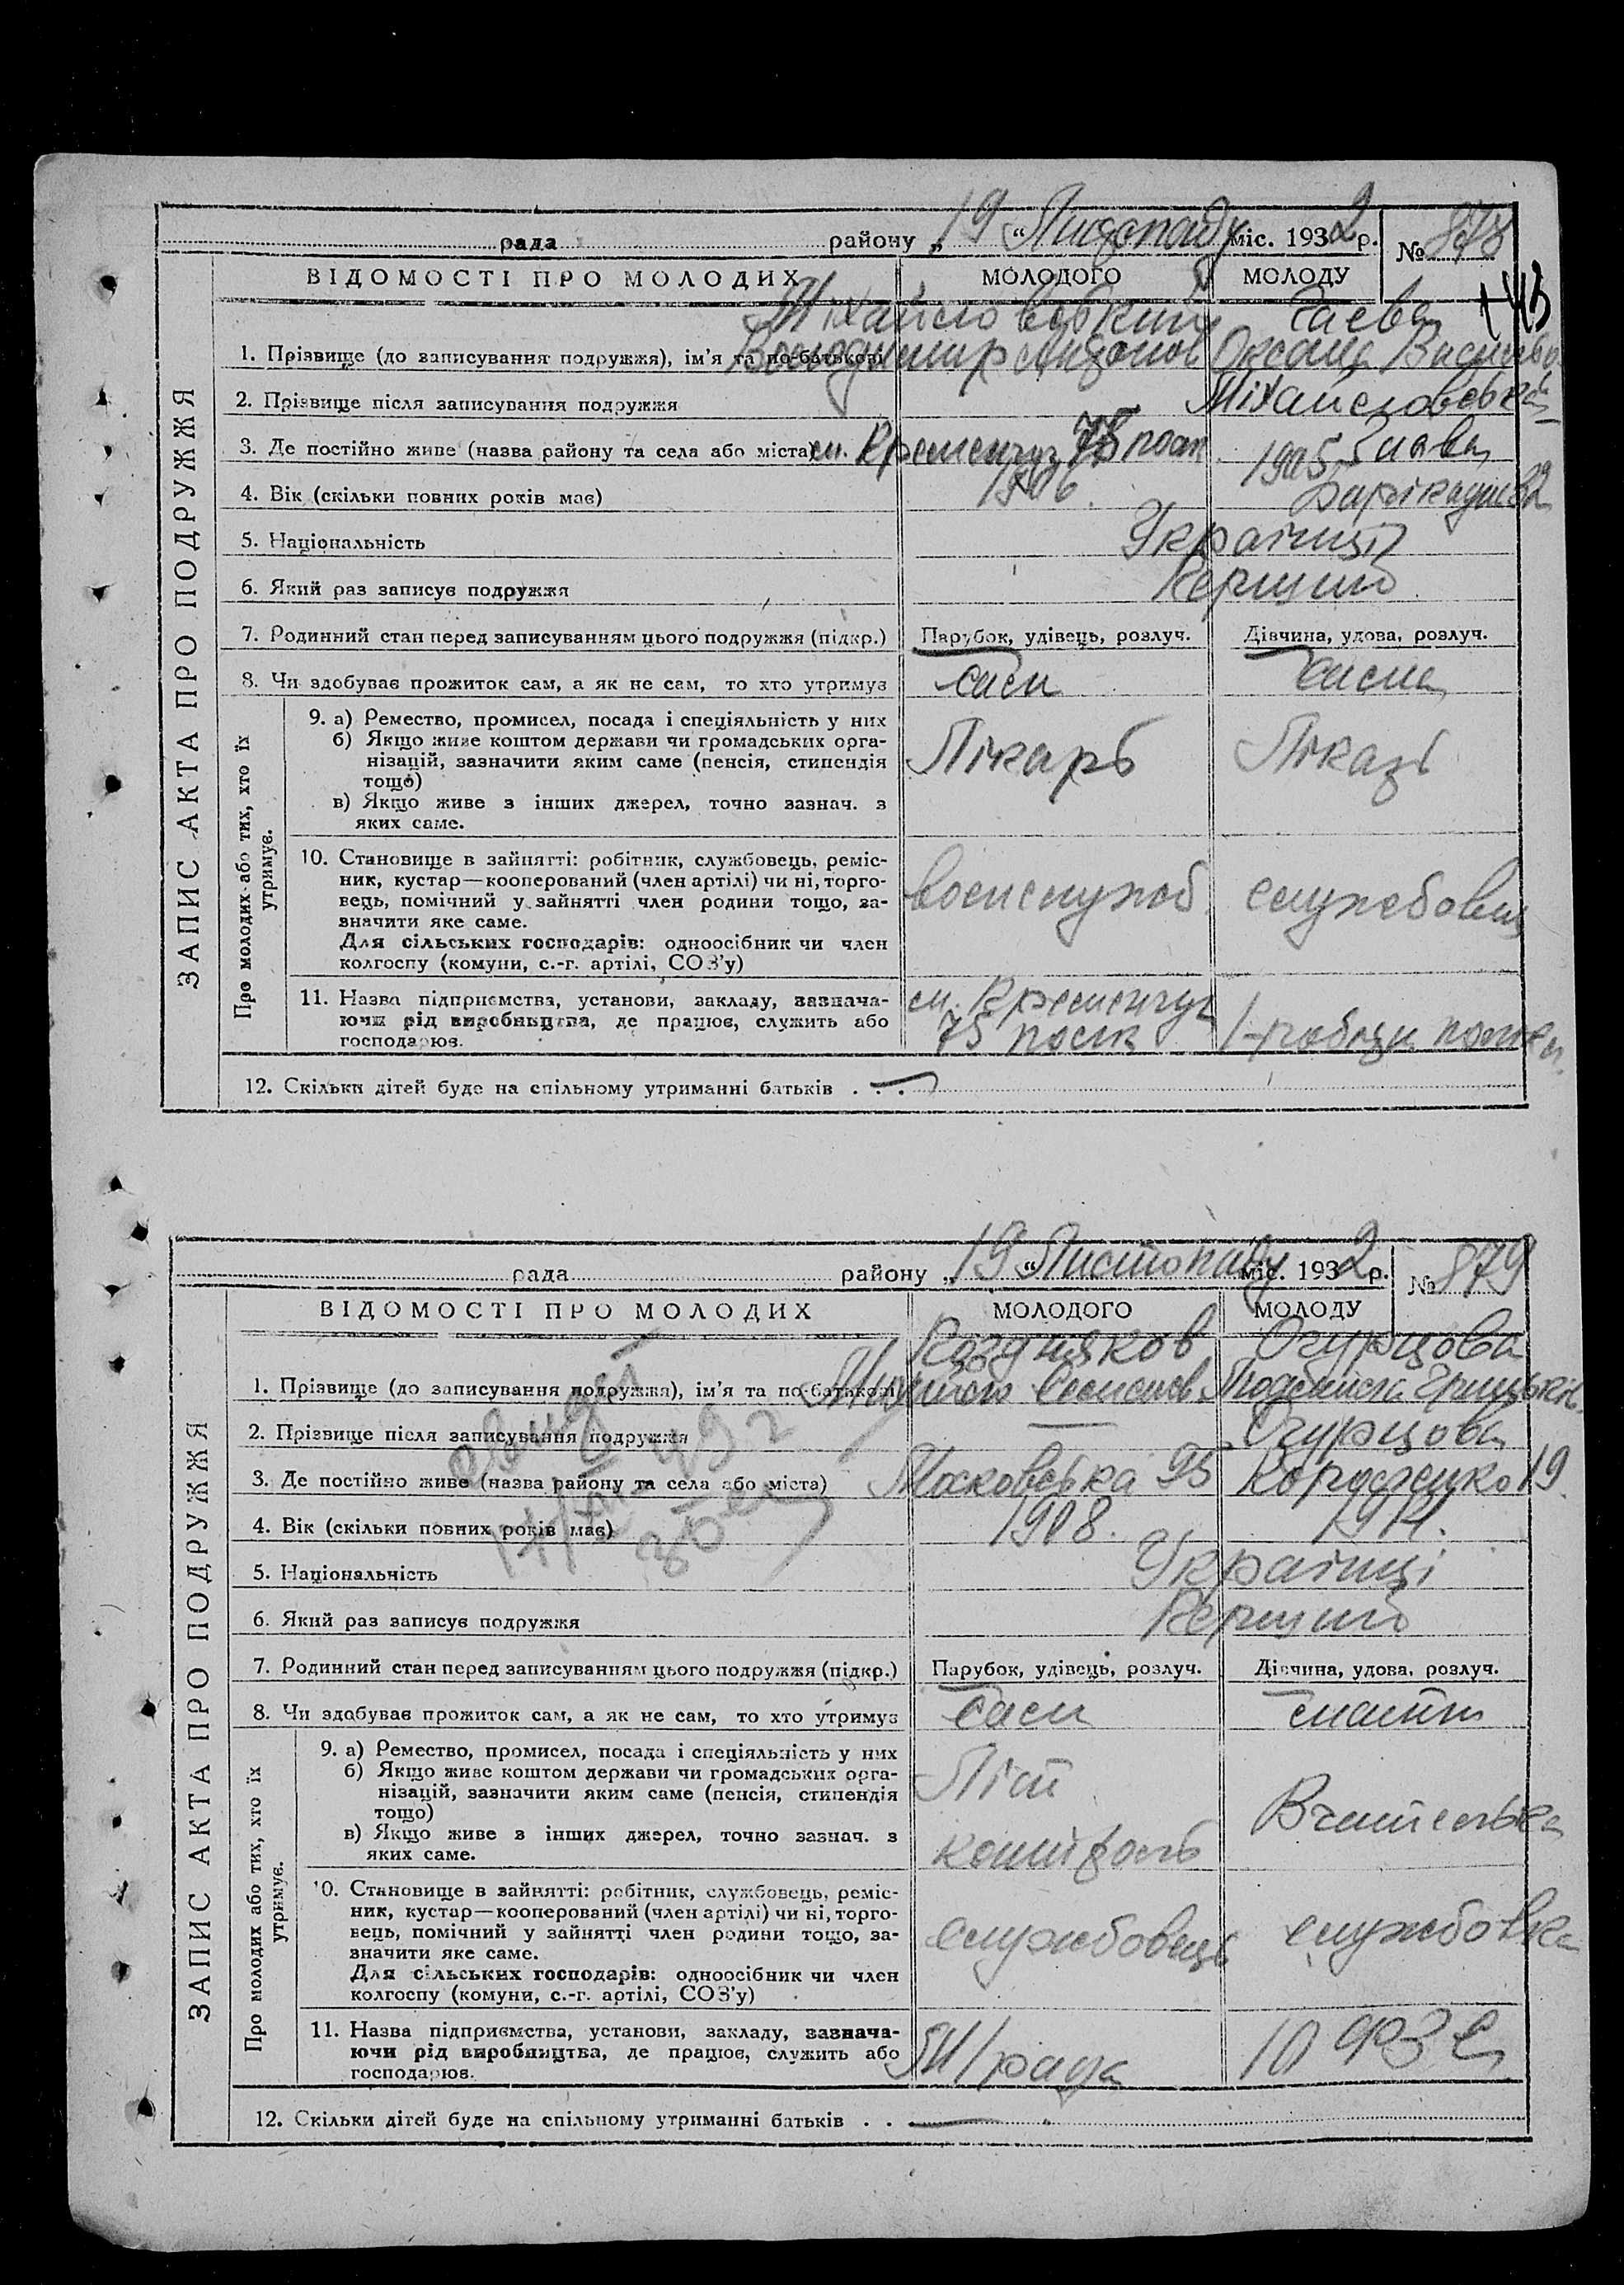 рада району „ 19 “ Листопаду міс. 1932 р. № 878
ВІДОМОСТІ ПРО МОЛОДИХ МОЛОДОГО МОЛОДУ
Міхайловський Гаєва
1. Прізвище (до записування подружжя), ім’я та по-батькові Володимир Антонов Оксана
2. Прізвище після записування подружжя Міхайловська
3. Де постійно живе (назва району та села або міста) м. Кременчуг 75 полк
4. Вік (скільки повних років має) 1906. 1905
5. Національність Українці
6. Який раз записує подружжя Перший
7. Родинний стан перед записуванням цього подружжя (підкр.) Парубок, удівець, розлуч. Дівчина, удова, розлуч.
8. Чи здобуває прожиток сам, а як не сам, то хто утримує сам сама
ЗАПИС АКТА ПРО ПОДРУЖЖЯ
Про молодих або тих, хто їх утримує.
9. а) Ремество, промисел, посада і спеціяльність у них
б) Якщо живе коштом держави чи громадських орга-
нізацій, зазначити яким саме (пенсія, стипендія
тощо)
в) Якщо живе з інших джерел, точно зазнач. з
яких саме.
Лікарь Лікарь
10. Становище в зайнятті: робітник, службовець, реміс-
ник, кустар—кооперований (член артілі) чи ні, торго-
вець, помічний у зайнятті член родини тощо, за-
значити яке саме.
Для сільських господарів: одноосібник чи член
колгоспу (комуни, с.-г. артілі, СОЗ’у)
воєнслужб. службовець
11. Назва підприємства, установи, закладу, зазнача-
ючи рід виробництва, де працює, служить або
господарює.
м. Кременчуг
75 полк
12. Скільки дітей буде на спільному утриманні батьків . . . —
рада району „ 19 “ Листопаду міс. 1932 р. № 879
ВІДОМОСТІ ПРО МОЛОДИХ МОЛОДОГО МОЛОДУ
Поздняков Огурцова
1. Прізвище (до записування подружжя), ім’я та по-батькові Михайло Семенов. Людмила Грицьків.
2. Прізвище після записування подружжя — Огурцова
3. Де постійно живе (назва району та села або міста) Московська 95 19
4. Вік (скільки повних років має) 1908. 1911.
5. Національність Українці
6. Який раз записує подружжя Перший
7. Родинний стан перед записуванням цього подружжя (підкр.) Парубок, удівець, розлуч. Дівчина, удова, розлуч.
8. Чи здобуває прожиток сам, а як не сам, то хто утримує сам
ЗАПИС АКТА ПРО ПОДРУЖЖЯ
Про молодих або тих, хто їх утримує.
9. а) Ремество, промисел, посада і спеціяльність у них
б) Якщо живе коштом держави чи громадських орга-
нізацій, зазначити яким саме (пенсія, стипендія
тощо)
в) Якщо живе з інших джерел, точно зазнач. з
яких саме.
Літ Вчителька
контроль
10. Становище в зайнятті: робітник, службовець, реміс-
ник, кустар—кооперований (член артілі) чи ні, торго-
вець, помічний у зайнятті член родини тощо, за-
значити яке саме.
Для сільських господарів: одноосібник чи член
колгоспу (комуни, с.-г. артілі, СОЗ’у)
службовець службовка
11. Назва підприємства, установи, закладу, зазнача-
ючи рід виробництва, де працює, служить або
господарює.
М/рада 10 ФЗС
12. Скільки дітей буде на спільному утриманні батьків . . —